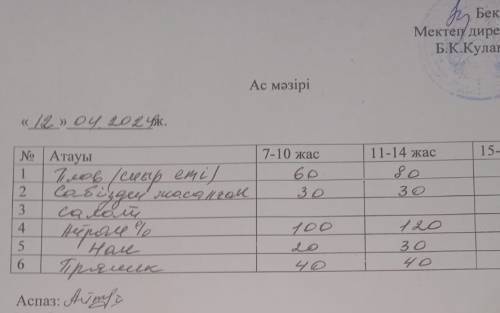 Бек
Мектеп дире
Б.К.Кулаг
Ас мәзірі
«12» 04 2024ж.
№ Атауы 7-10 жас 11-14 жас 15-
1 Плов (сиыр еті) 60 80
2 Сәбізден жасалған 30 30
3 салат
4 Айран % 100 120
5 Нан 20 30
6 Пряник 40 40
Аспаз: